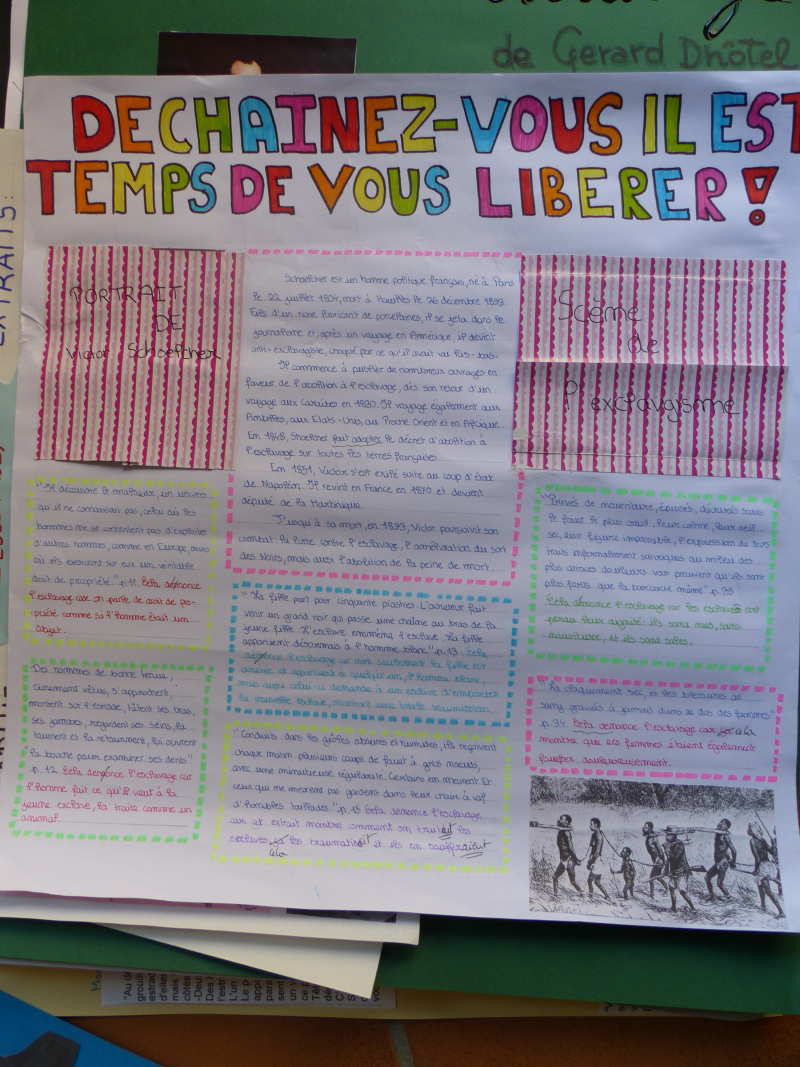 de Gerard Dhôtel
DECHAINEZ-VOUS IL EST
TEMPS DE VOUS LIBERER !
EXTRAITS:
PORTRAIT
DE
Victor Schoelcher
Schoelcher est un homme politique français, né à Paris
le 22 juillet 1804, mort à Houilles le 26 décembre 1893.
Fils d'un riche fabricant de porcelaines, il se jeta dans le
journalisme et, après un voyage en Amérique, il devint
anti-esclavagiste, choqué par ce qu'il avait vu là-bas.
Il commence à publier de nombreux ouvrages en
faveur de l'abolition à l'esclavage, dès son retour d'un
voyage aux Caraïbes en 1830. Il voyage également aux
Antilles, aux Etats-Unis, au Proche Orient et en Afrique.
Em 1848, Shoelcher fait adopter le décret d'abolition à
l'esclavage sur toutes les terres françaises.
Em 1851, Victor s'est exilé suite au coup d'état
de Napoléon. Il revint en France en 1870 et devient
député de la Martinique.
Jusqu'à sa mort, en 1893, Victor poursuivit son
combat: la lutte contre l'esclavage, l'amélioration du sort
des Noirs, mais aussi l'abolition de la peine de mort.
Scème
de
l'exclavgisme
"Il découvre le malheur, un univers
qu'il ne connaissait pas, celui où les
hommes ne se contentent pas d'exploiter
d'autres hommes, comme en Europe, mais
où ils exercent sur eux un véritable
droit de propriété" p.11 Cela dénonce
l'esclavage car on parle de droit de pro-
priété comme si l'homme était un
objet.
"Des hommes de bonne tenue,
richement vêtus, s'approchent,
montent sur l'estrade, tâtent ses bras,
ses jambes, regardent ses seins, la
tournent et la retournent, lui ouvrent
la bouche pour examiner ses dents"
p.12 Cela dénonce l'esclavage car
l'homme fait ce qu'il veut à la
jeune esclave, la traite comme un
animal.
"La fille part pour cinquante piastres. L'acheteur fait
venir un grand noir qui passe une chaîne au bras de la
jeune fille. L'esclave emmène l'esclave. La fille
appartient désormais à l'homme blanc" p.13 Cela
dénonce l'esclavage car non seulement la fille est
achetée et appartient à quelqu'un, l'homme blanc,
mais aussi celui-ci demande à un esclave d'emporter
la nouvelle esclave, montrant une totale soumission.
"Conduits dans les geôles obscures et humides, ils reçoivent
chaque matin plusieurs coups de fouet à gros noeuds,
avec une minutieuse régularité. Certains en meurent. Et
ceux qui ne meurent pas gardent dans leur chair à vif
d'horribles balafres." p.15 Cela dénonce l'esclavage
car cet extrait montre comment on traitait les
esclaves, cela les traumatisait et ils en souffraient
"Privés de nourriture, épuisés, déchirés sous
le fouet le plus cruel, leur calme, leur oeil
sec, leur figure impassible, l'expression de leurs
traits infernalement satiriques au milieu des
plus atroces douleurs vous prouvent qu'ils sont
plus forts que la barbarie même" p.35
Cela dénonce l'esclavage car les esclaves ont
perdu leur dignité: ils sont nus, sans
nourriture, et ils sont sales.
"Le claquement sec, et les blessures de
sang gravés à jamais dans le dos des femmes"
p.35 Cela dénonce l'esclavage car cela
montre que les femmes étaient également
fouettées douloureusement.